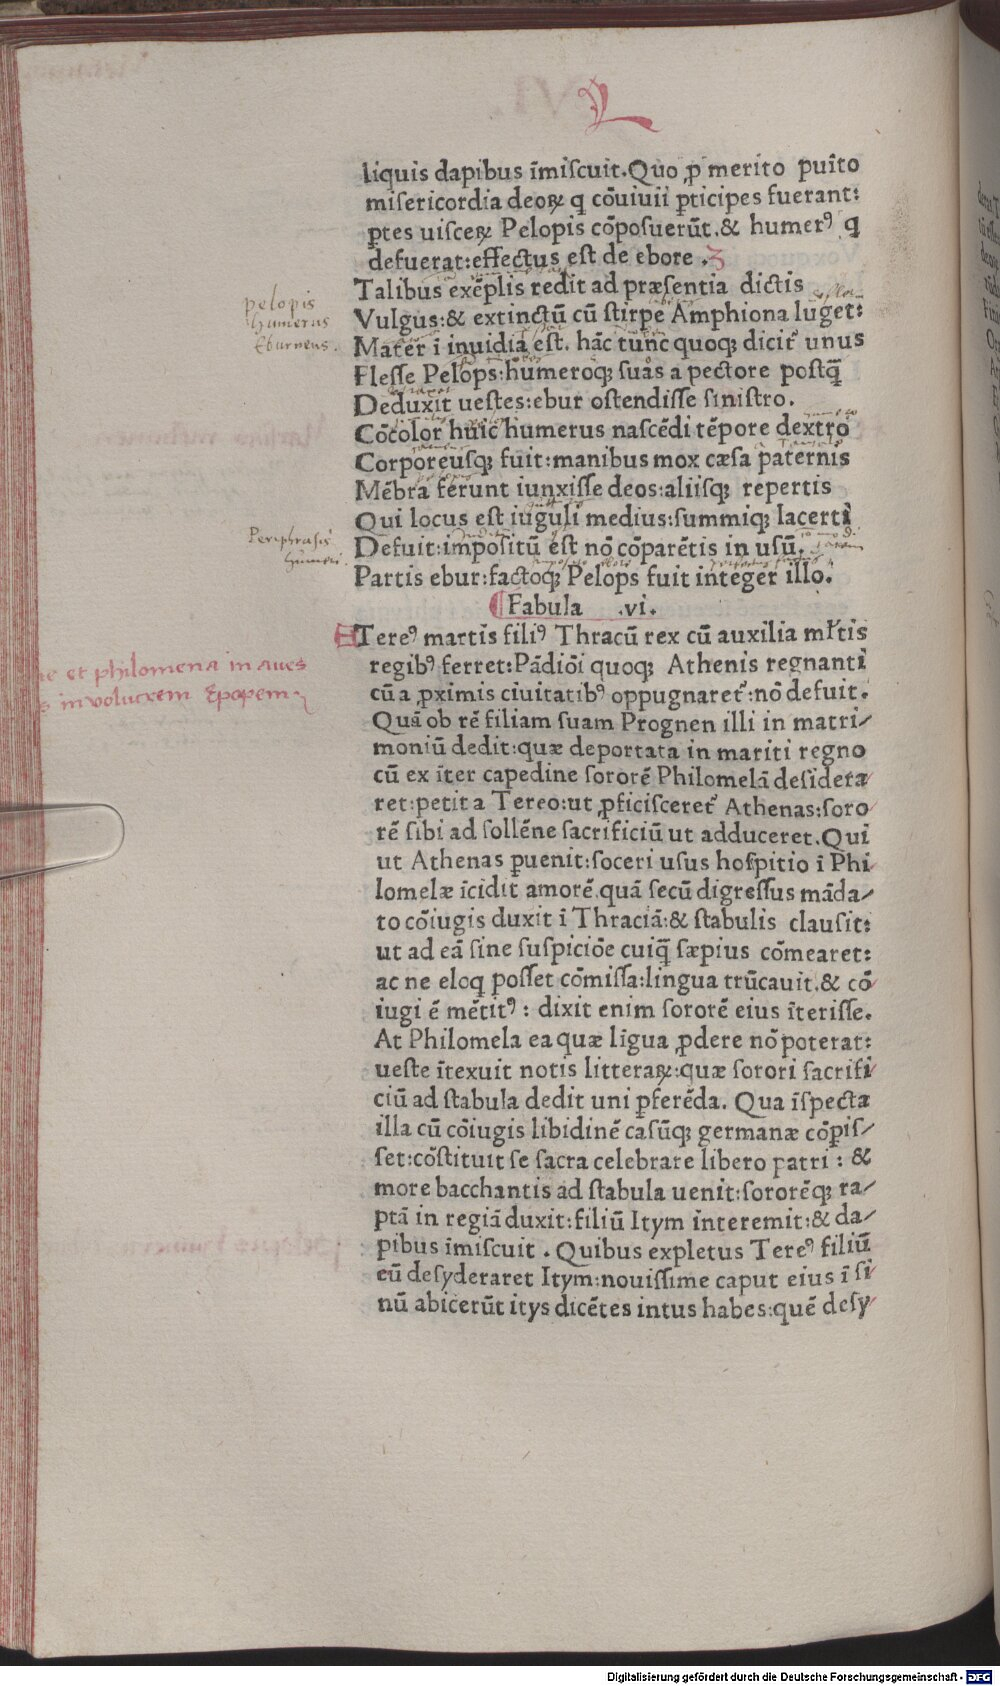 L
liquis dapibus īmiſcuit. Quo ꝓ merito puīto
miſericordia deoꝝ q cōuiuii ꝑticipes fuerant:
ꝑtes uiſceꝝ Pelopis cōpoſuerūt. & humerꝰ q
defuerat: effectus eſt de ebore .
Talibus exēplis redit ad præſentia dictis
pelopis
humerus
Eburneus.
Vulgus: & extinctū cū ſtirpe Amphiona luget:
Mater ī inuidia eſt. hāc tunc quoqꝫ dicit᷑ unus
Fleſſe Pelops: humeroqꝫ ſuas a pectore poſtꝗ̄
Deduxit ueſtes: ebur oſtendiſſe ſiniſtro.
Cōcolor huic humerus naſcēdi tēpore dextro
Corporeuſqꝫ fuit: manibus mox cæſa paternis
Mēbra ferunt iunxiſſe deos: aliiſqꝫ repertis
Qui locus eſt iuguli medius: ſummiqꝫ lacerti
Periphrasis
humeri.
Defuit: impoſitū eſt nō cōparētis in uſū.
Partis ebur: factoqꝫ Pelops fuit integer illo.
Fabula .vi.
Tereꝰ martis filiꝰ Thracū rex cū auxilia mĺtis
e et philomena in aues
s in volucrem Epopem
regibꝰ ferret: Pādiōi quoqꝫ Athenis regnanti
cū a ꝓximis ciuitatibꝰ oppugnaret᷑: nō defuit.
Quā ob rē filiam ſuam Prognen illi in matri/
moniū dedit: quæ deportata in mariti regno
cū ex īter capedine ſororē Philomelā deſidera
ret: petit a Tereo: ut ꝓficiſceret᷑ Athenas: ſoro
rē ſibi ad ſollēne ſacrificiū ut adduceret. Qui
ut Athenas ꝑuenit: ſoceri uſus hoſpitio ī Phi
lomelæ īcidit amorē. quā ſecū digreſſus māda/
to cōiugis duxit ī Thraciā: & ſtabulis clauſit:
ut ad eā ſine ſuſpiciōe cuiꝗ̄ ſæpius cōmearet:
ac ne eloq poſſet cōmiſſa: lingua trūcauit. & cō
iugi ē mētitꝰ : dixit enim ſororē eius īteriſſe.
At Philomela ea quæ līgua ꝓdere nō poterat:
ueſte ītexuit notis litteraꝝ: quæ ſorori ſacrifi
ciū ad ſtabula dedit uni ꝑferēda. Qua īſpecta
illa cū cōiugis libidinē caſūqꝫ germanæ cōpiſ/
ſet: cōſtituit ſe ſacra celebrare libero patri : &
more bacchantis ad ſtabula uenit: ſororēqꝫ ra/
ptā in regiā duxit: filiū Itym īnteremit: & da/
pibus īmiſcuit . Quibus expletus Tereꝰ filiū
cū deſyderaret Itym: nouiſſime caput eius ī ſi
nū abicerūt itys dicētes intus habes: quē deſy
Digitalisierung gefördert durch die Deutsche Forschungsgemeinschaft - DFG